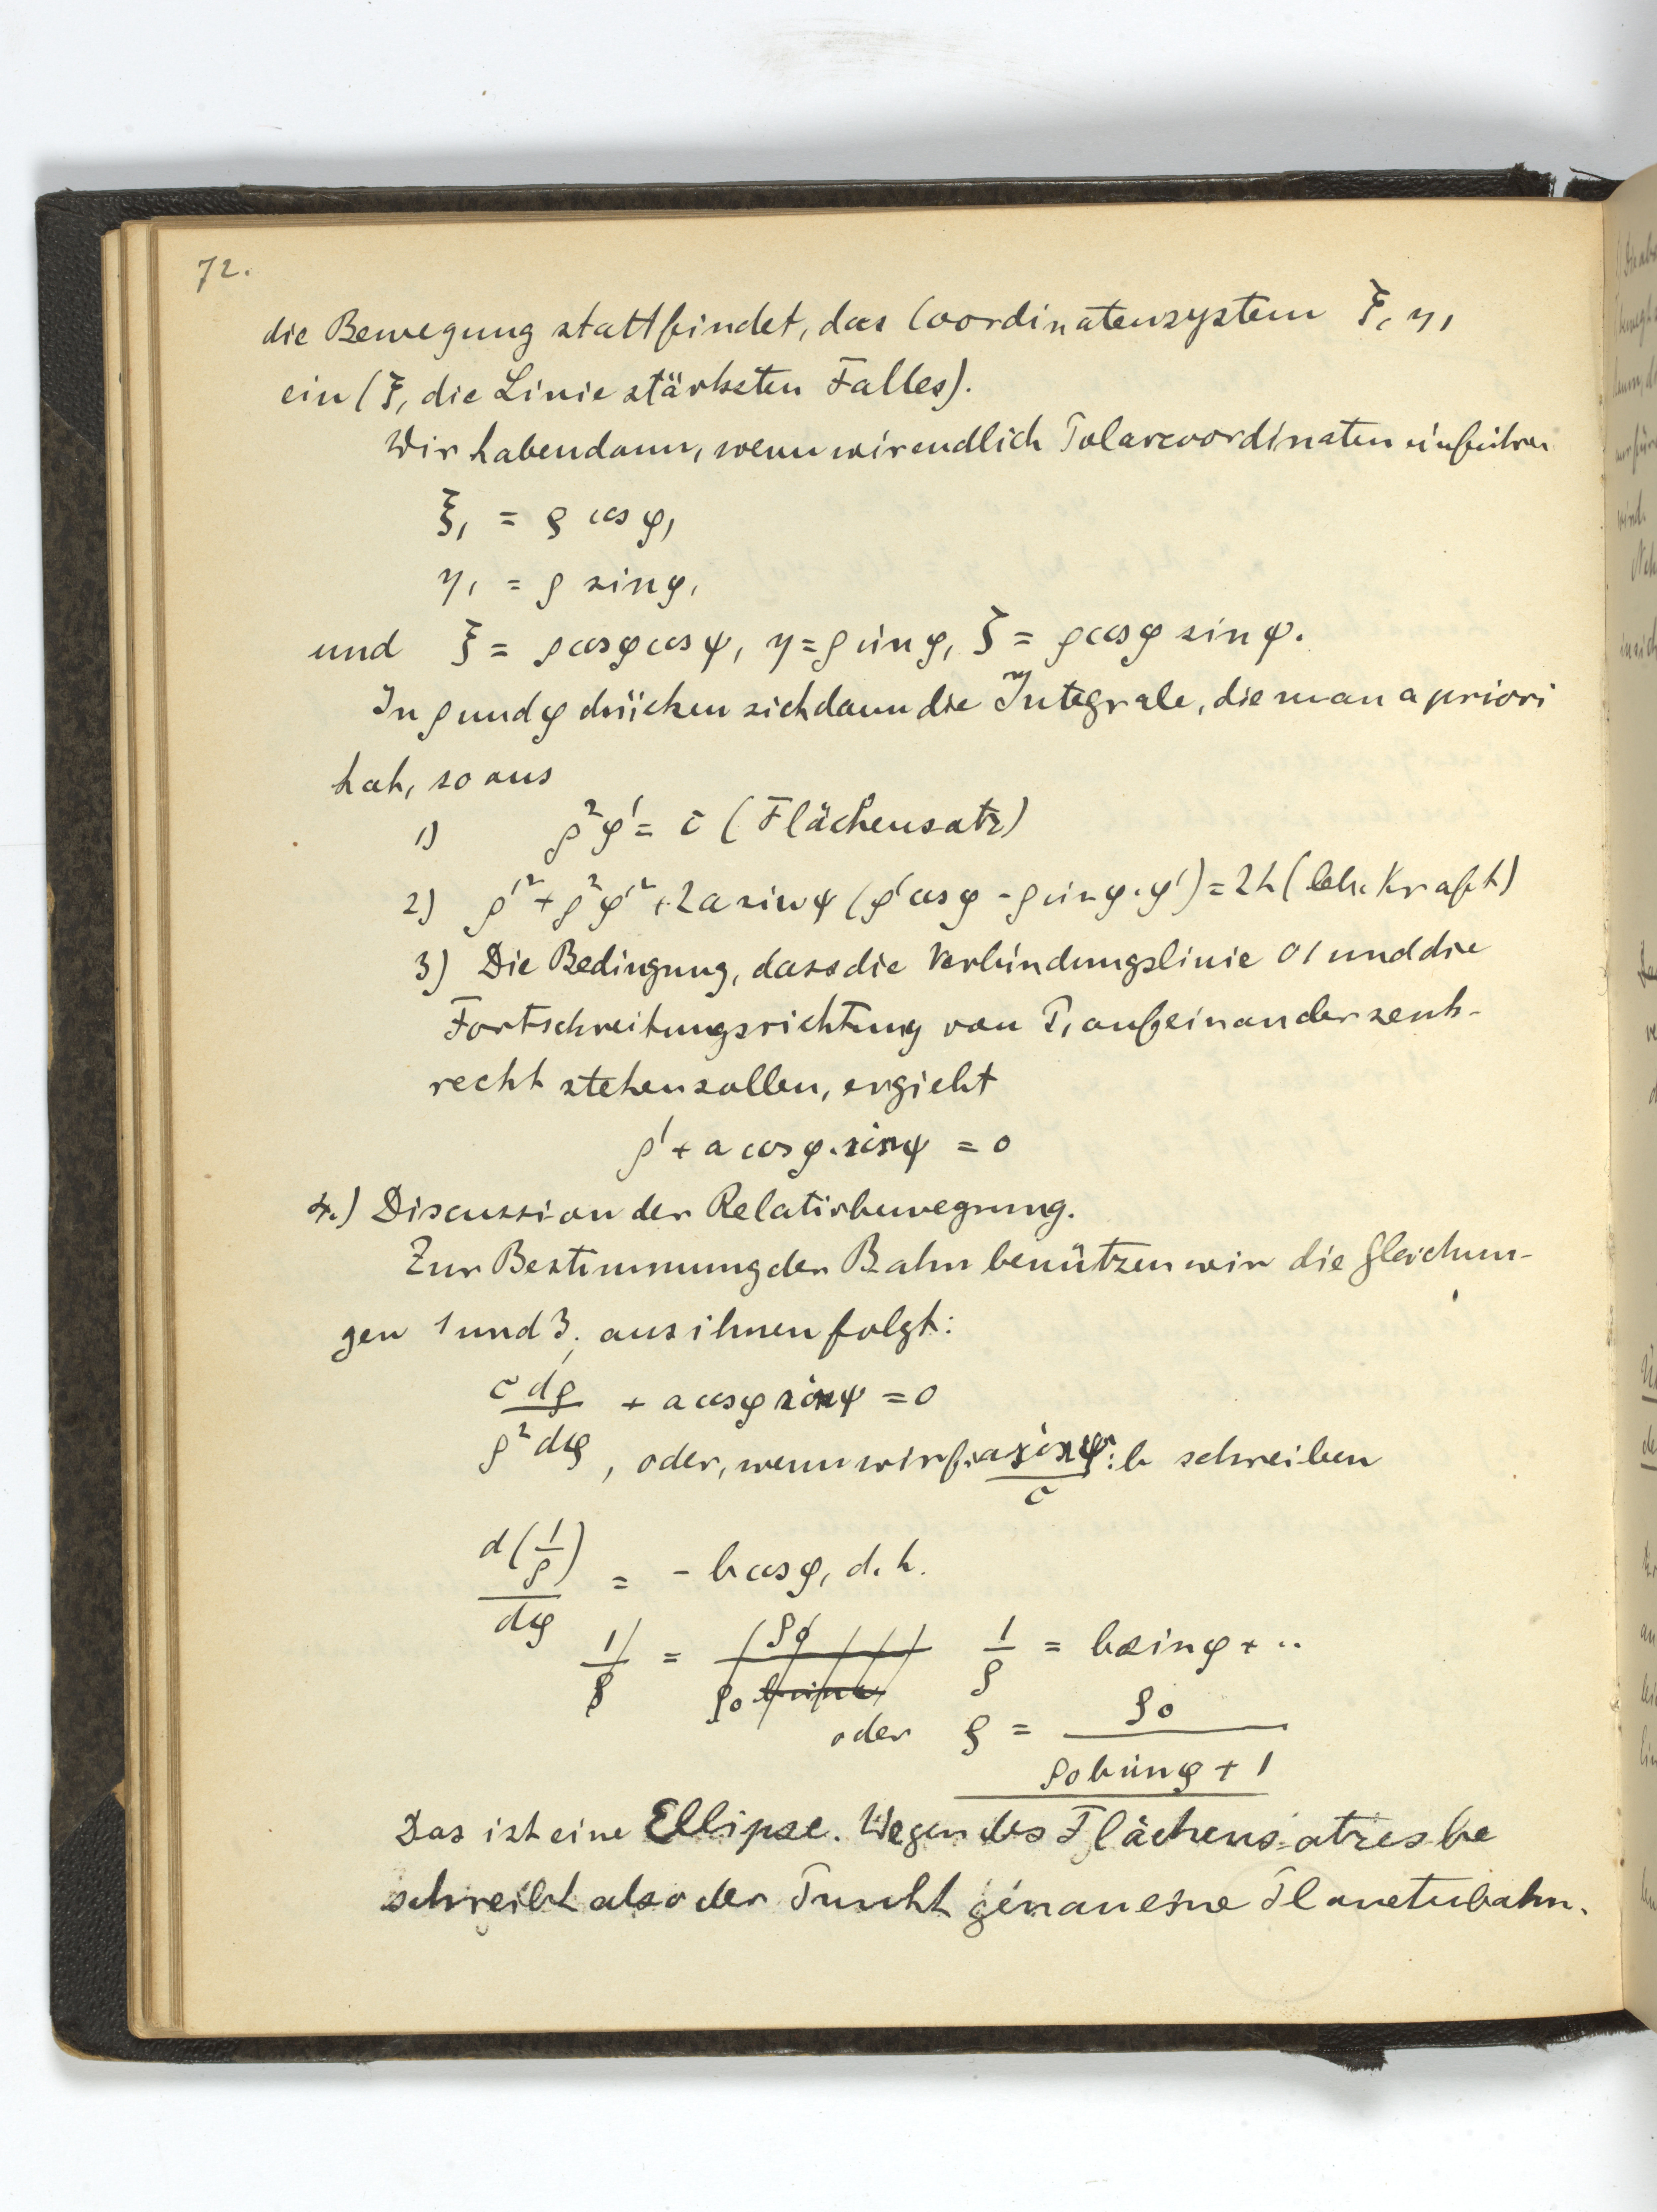 72.
die Bewegung stattfindet, das Coordinatensystem ξ₁ η₁
ein (ξ₁ die Linie stärksten Falles).
Wir haben dann, wenn wir endlich Polarcoordinaten einführen
ξ₁ = ρ cos φ,
η₁ = ρ sin φ,
und ξ = ρ cos φ cos ψ, η = ρ sin φ, ζ = ρ cos φ sin ψ.
In ρ und φ drücken sich dann die Integrale, die man a priori
hat, so aus
1) ρ²φ' = c (Flächensatz)
2) ρ'² + ρ²φ'² + 2a sin ψ (ρ' cos φ - ρ sin φ · φ') = 2h (leb. Kraft)
3) Die Bedingung, dass die Verbindungslinie 01 und die
Fortschreitungsrichtung von P₁ aufeinander senk-
recht stehen sollen, ergiebt
ρ' + a cos φ · sin ψ = 0
4.) Discussion der Relativbewegung.
Zur Bestimmung der Bahn benützen wir die Gleichun-
gen 1 und 3, aus ihnen folgt:
c dρ / ρ² dφ + a cos φ sin ψ = 0
, oder, wenn wir f. a sin ψ / c : b schreiben
d(1/ρ) / dφ = - b cos φ, d. h.
1/ρ = ρ0 / ρ0 1/ρ = b sin φ + ..
oder ρ = ρ0 / ρ0 b sin φ + 1
Das ist eine Ellipse. Wegen des Flächensatzes be
schreibt also der Punkt genau eine Planetenbahn.